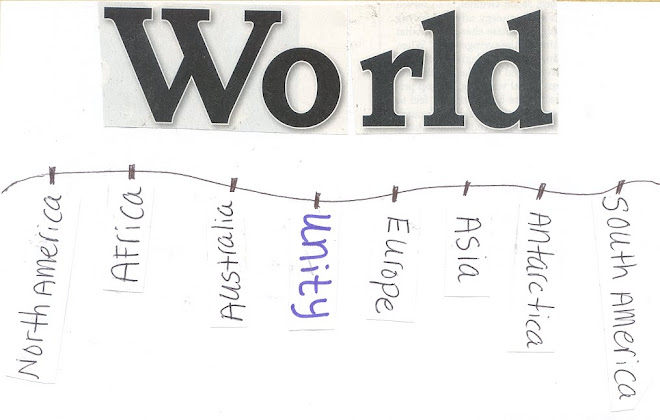 World
North America
Africa
Australia
Unity
Europe
Asia
Antarctica
South America